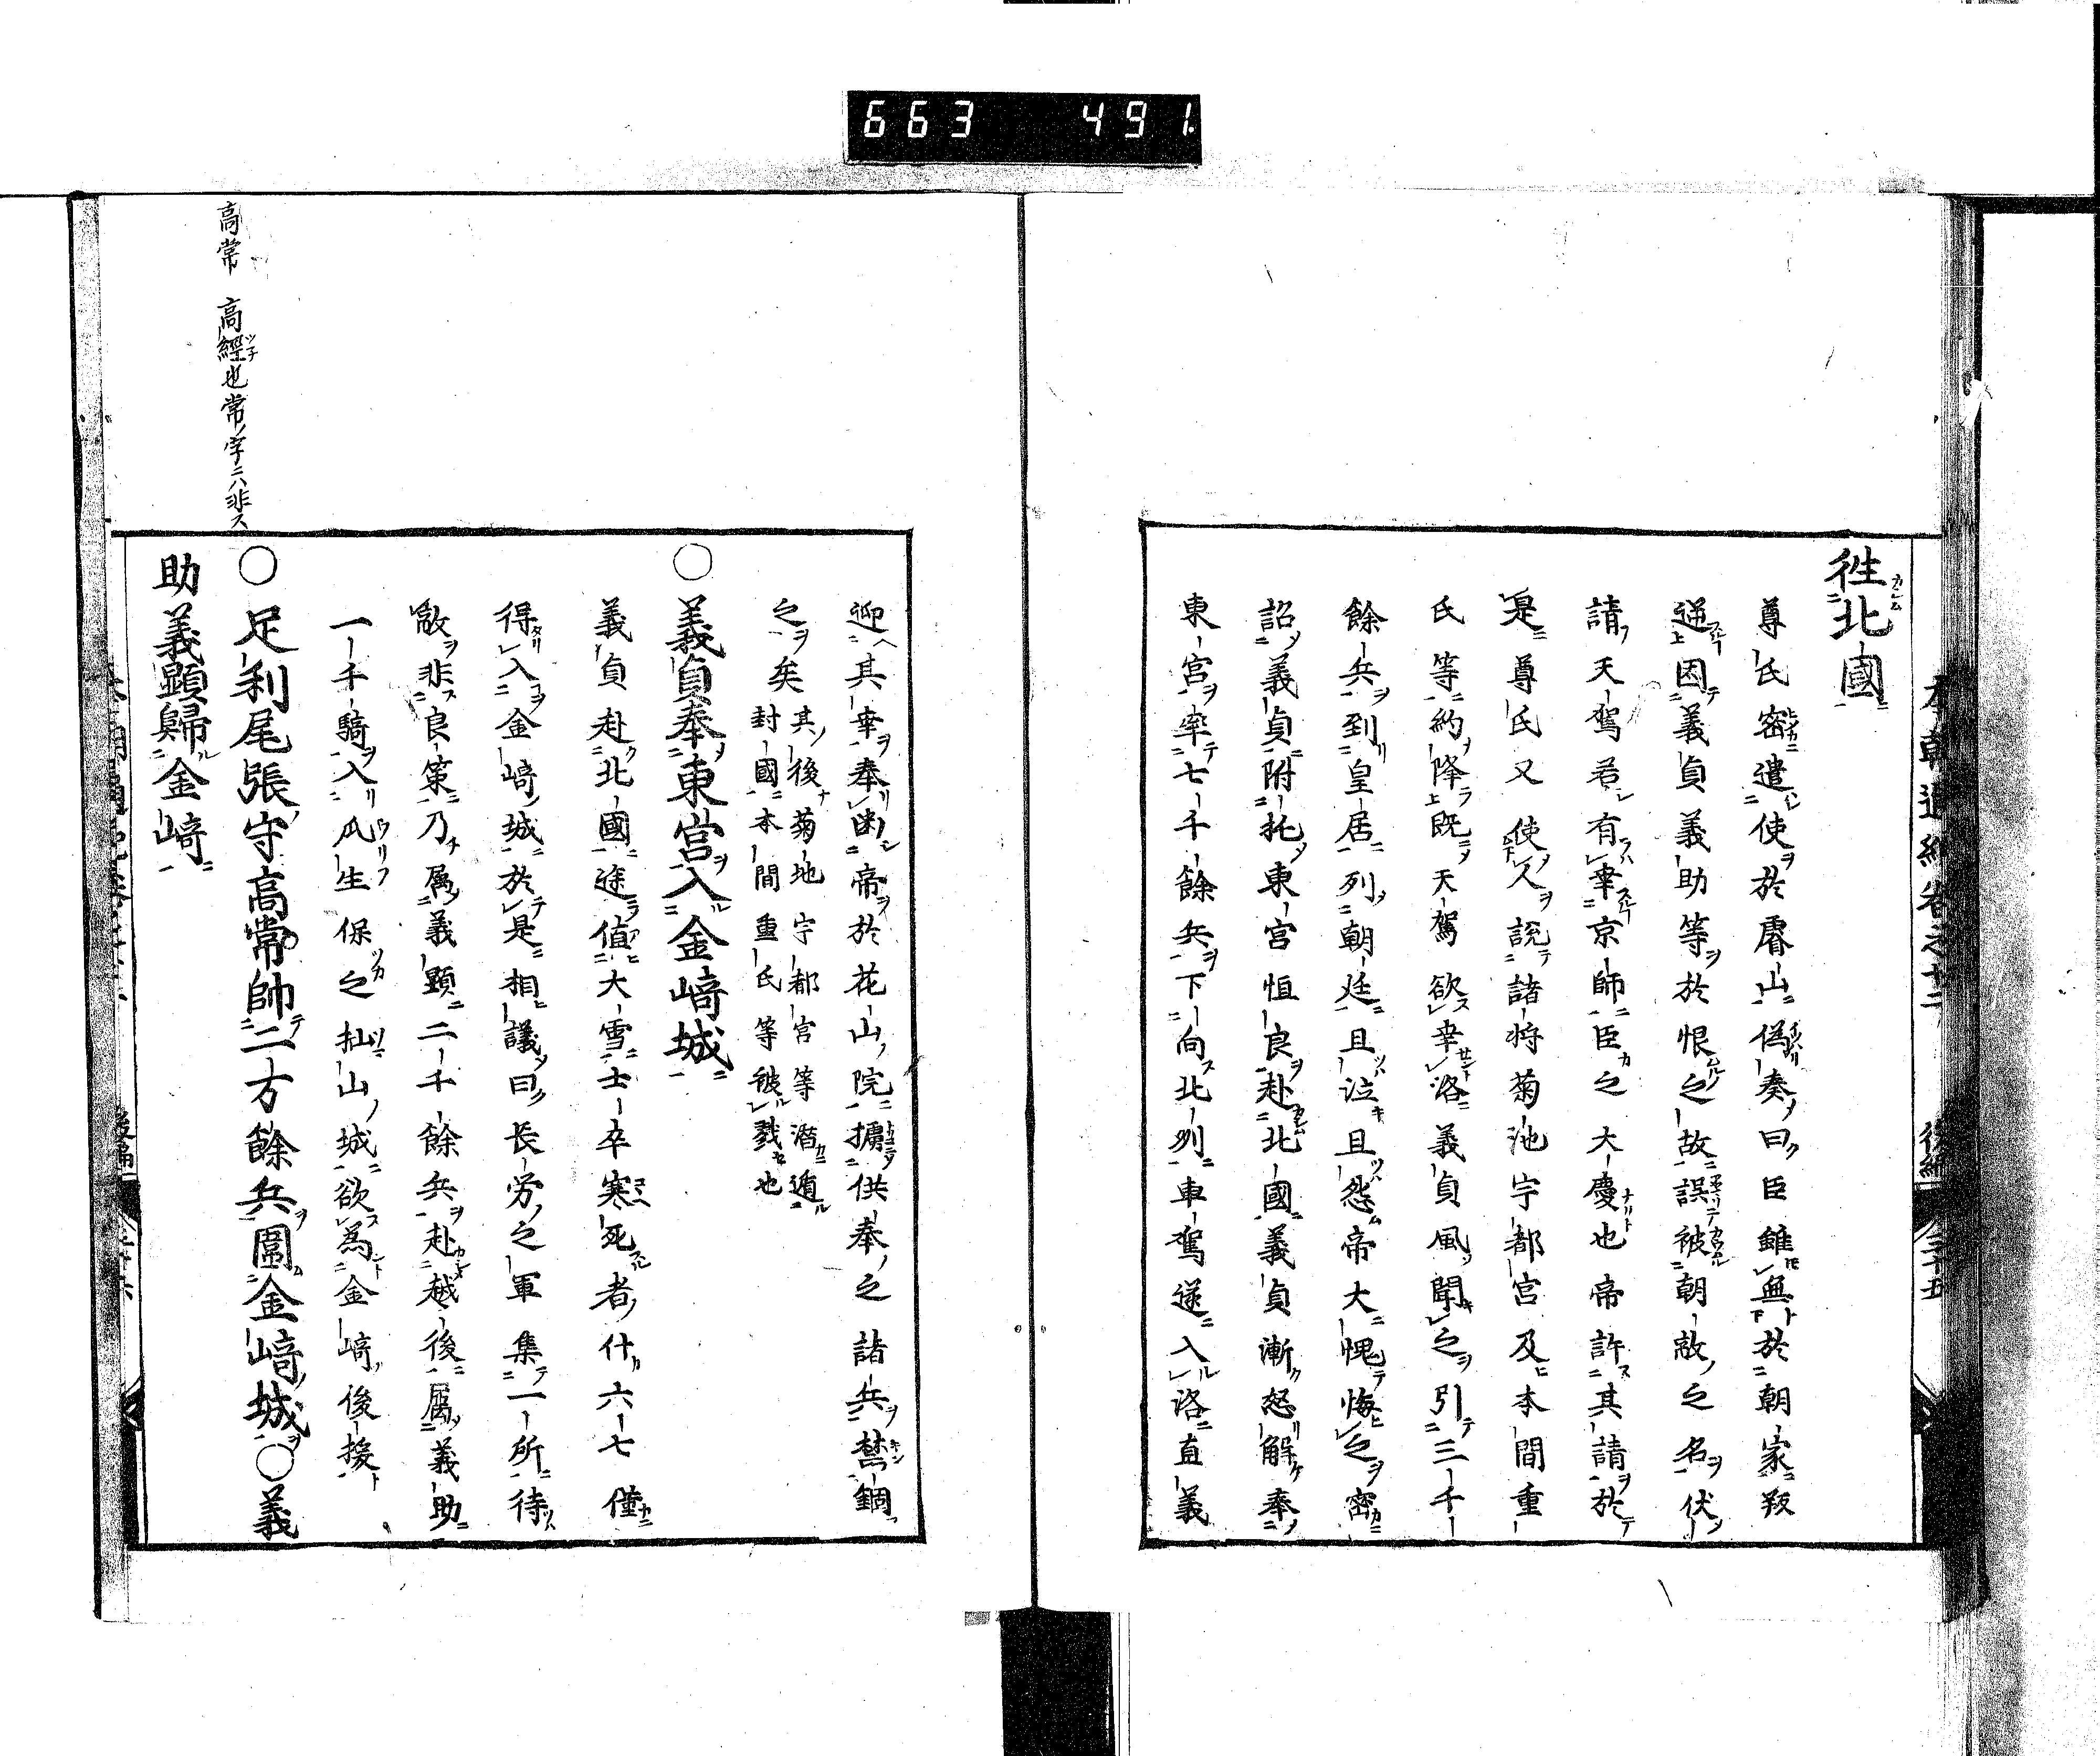 663 491.
往北國
尊氏密遣使於膚山偽奏曰臣雖無於朝家叛
逆因義貞義助等於恨之故誤被朝敵之名伏
請天駕若有幸京師臣之大慶也帝許其請於
是尊氏又使人説諸將菊池宇都宮及本間重
氏等約降既天駕欲幸洛義貞風聞之引三千
餘兵到皇居列朝廷且泣且怨帝大愧悔之密
詔義貞附托東宮恒良赴北國義貞漸怒解奉
東宮率七千餘兵下向北列車駕遂入洛直義
迎其幸奉囚帝於花山院擄供奉之諸兵禁錮
之矣其後菊地宇都宮等潛遁
封國本間重氏等被戮也
○義貞奉東宮入金﨑城
義貞赴北國途値大雪士卒寒死者什六七僅
得入金﨑城於是相議曰長労之軍集一所待
敵非良策乃属義顕二千餘兵赴越後属義助
一千騎入瓜生保之拙山城欲為金﨑後援
○足利尾張守高常帥二万餘兵圍金﨑城○義
助義顕歸金﨑
高常 高經也常ノ字ニハ非ス